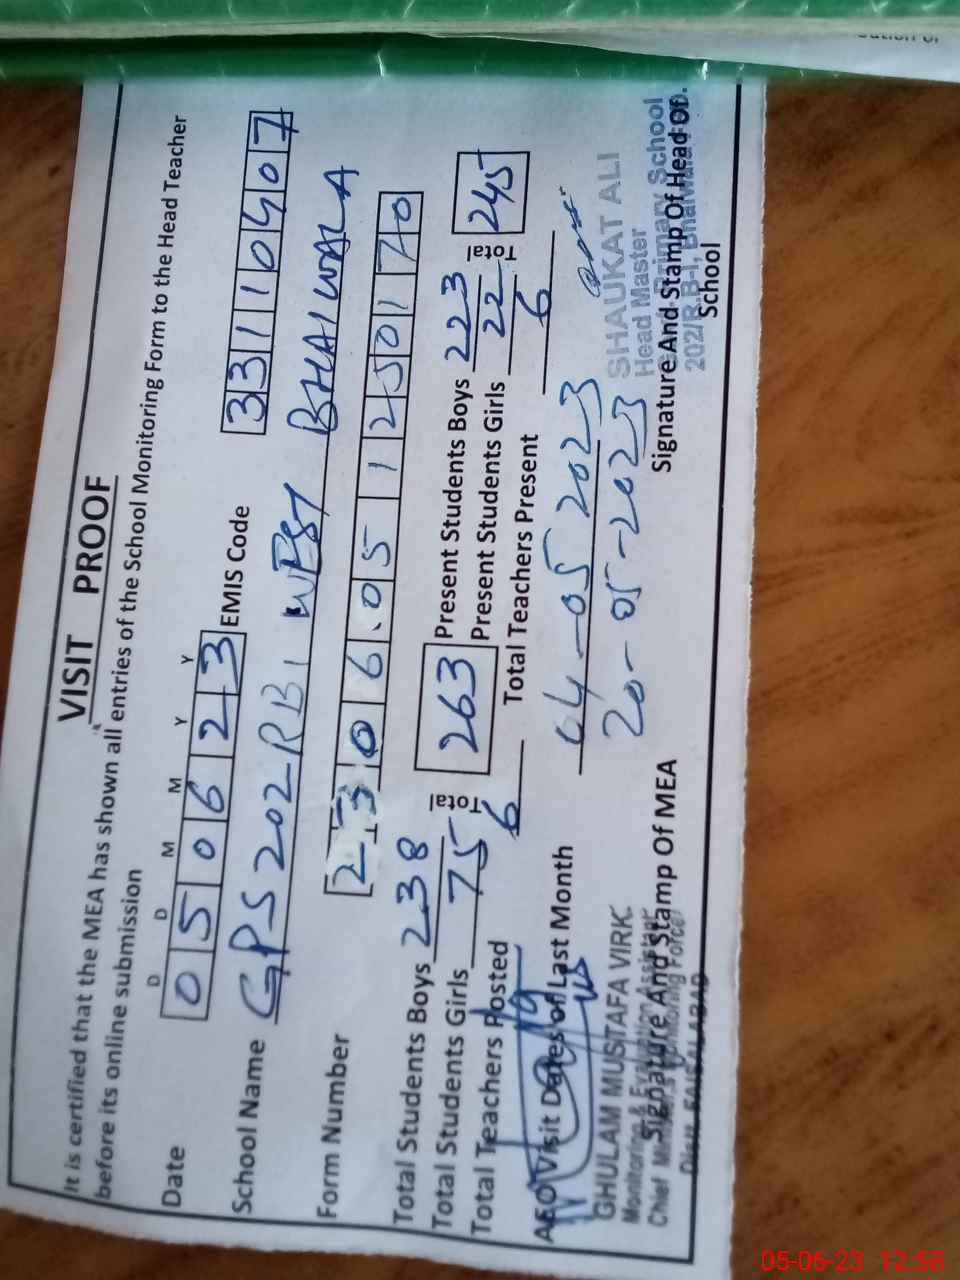 VISIT PROOF
It is certified that the MEA has shown all entries of the School Monitoring Form to the Head Teacher
before its online submission
D D M M Y Y
Date 0 5 0 6 2 3 EMIS Code 3 3 1 1 0 4 0 7
School Name GPS 202 RB1 WEST BHAIWALA
Form Number 2 3 0 6 0 5 1 2 5 0 1 7 0
Total Students Boys 238 Total 263 Present Students Boys 223 Total 245
Total Students Girls 75 Present Students Girls 22
Total Teachers Posted 6 Total Teachers Present 6
AEO Visit Dates of Last Month 04-05 2023
20-05-2023
GHULAM MUSTAFA VIRK
Monitoring & Evaluation Assistant
Chief Minister's Monitoring Force
Distt. FAISALABAD
Signature And Stamp Of MEA
SHAUKAT ALI
Head Master
Primary School
202/R.B-I,
Signature And Stamp Of Head Of
School
05-06-23 12:58